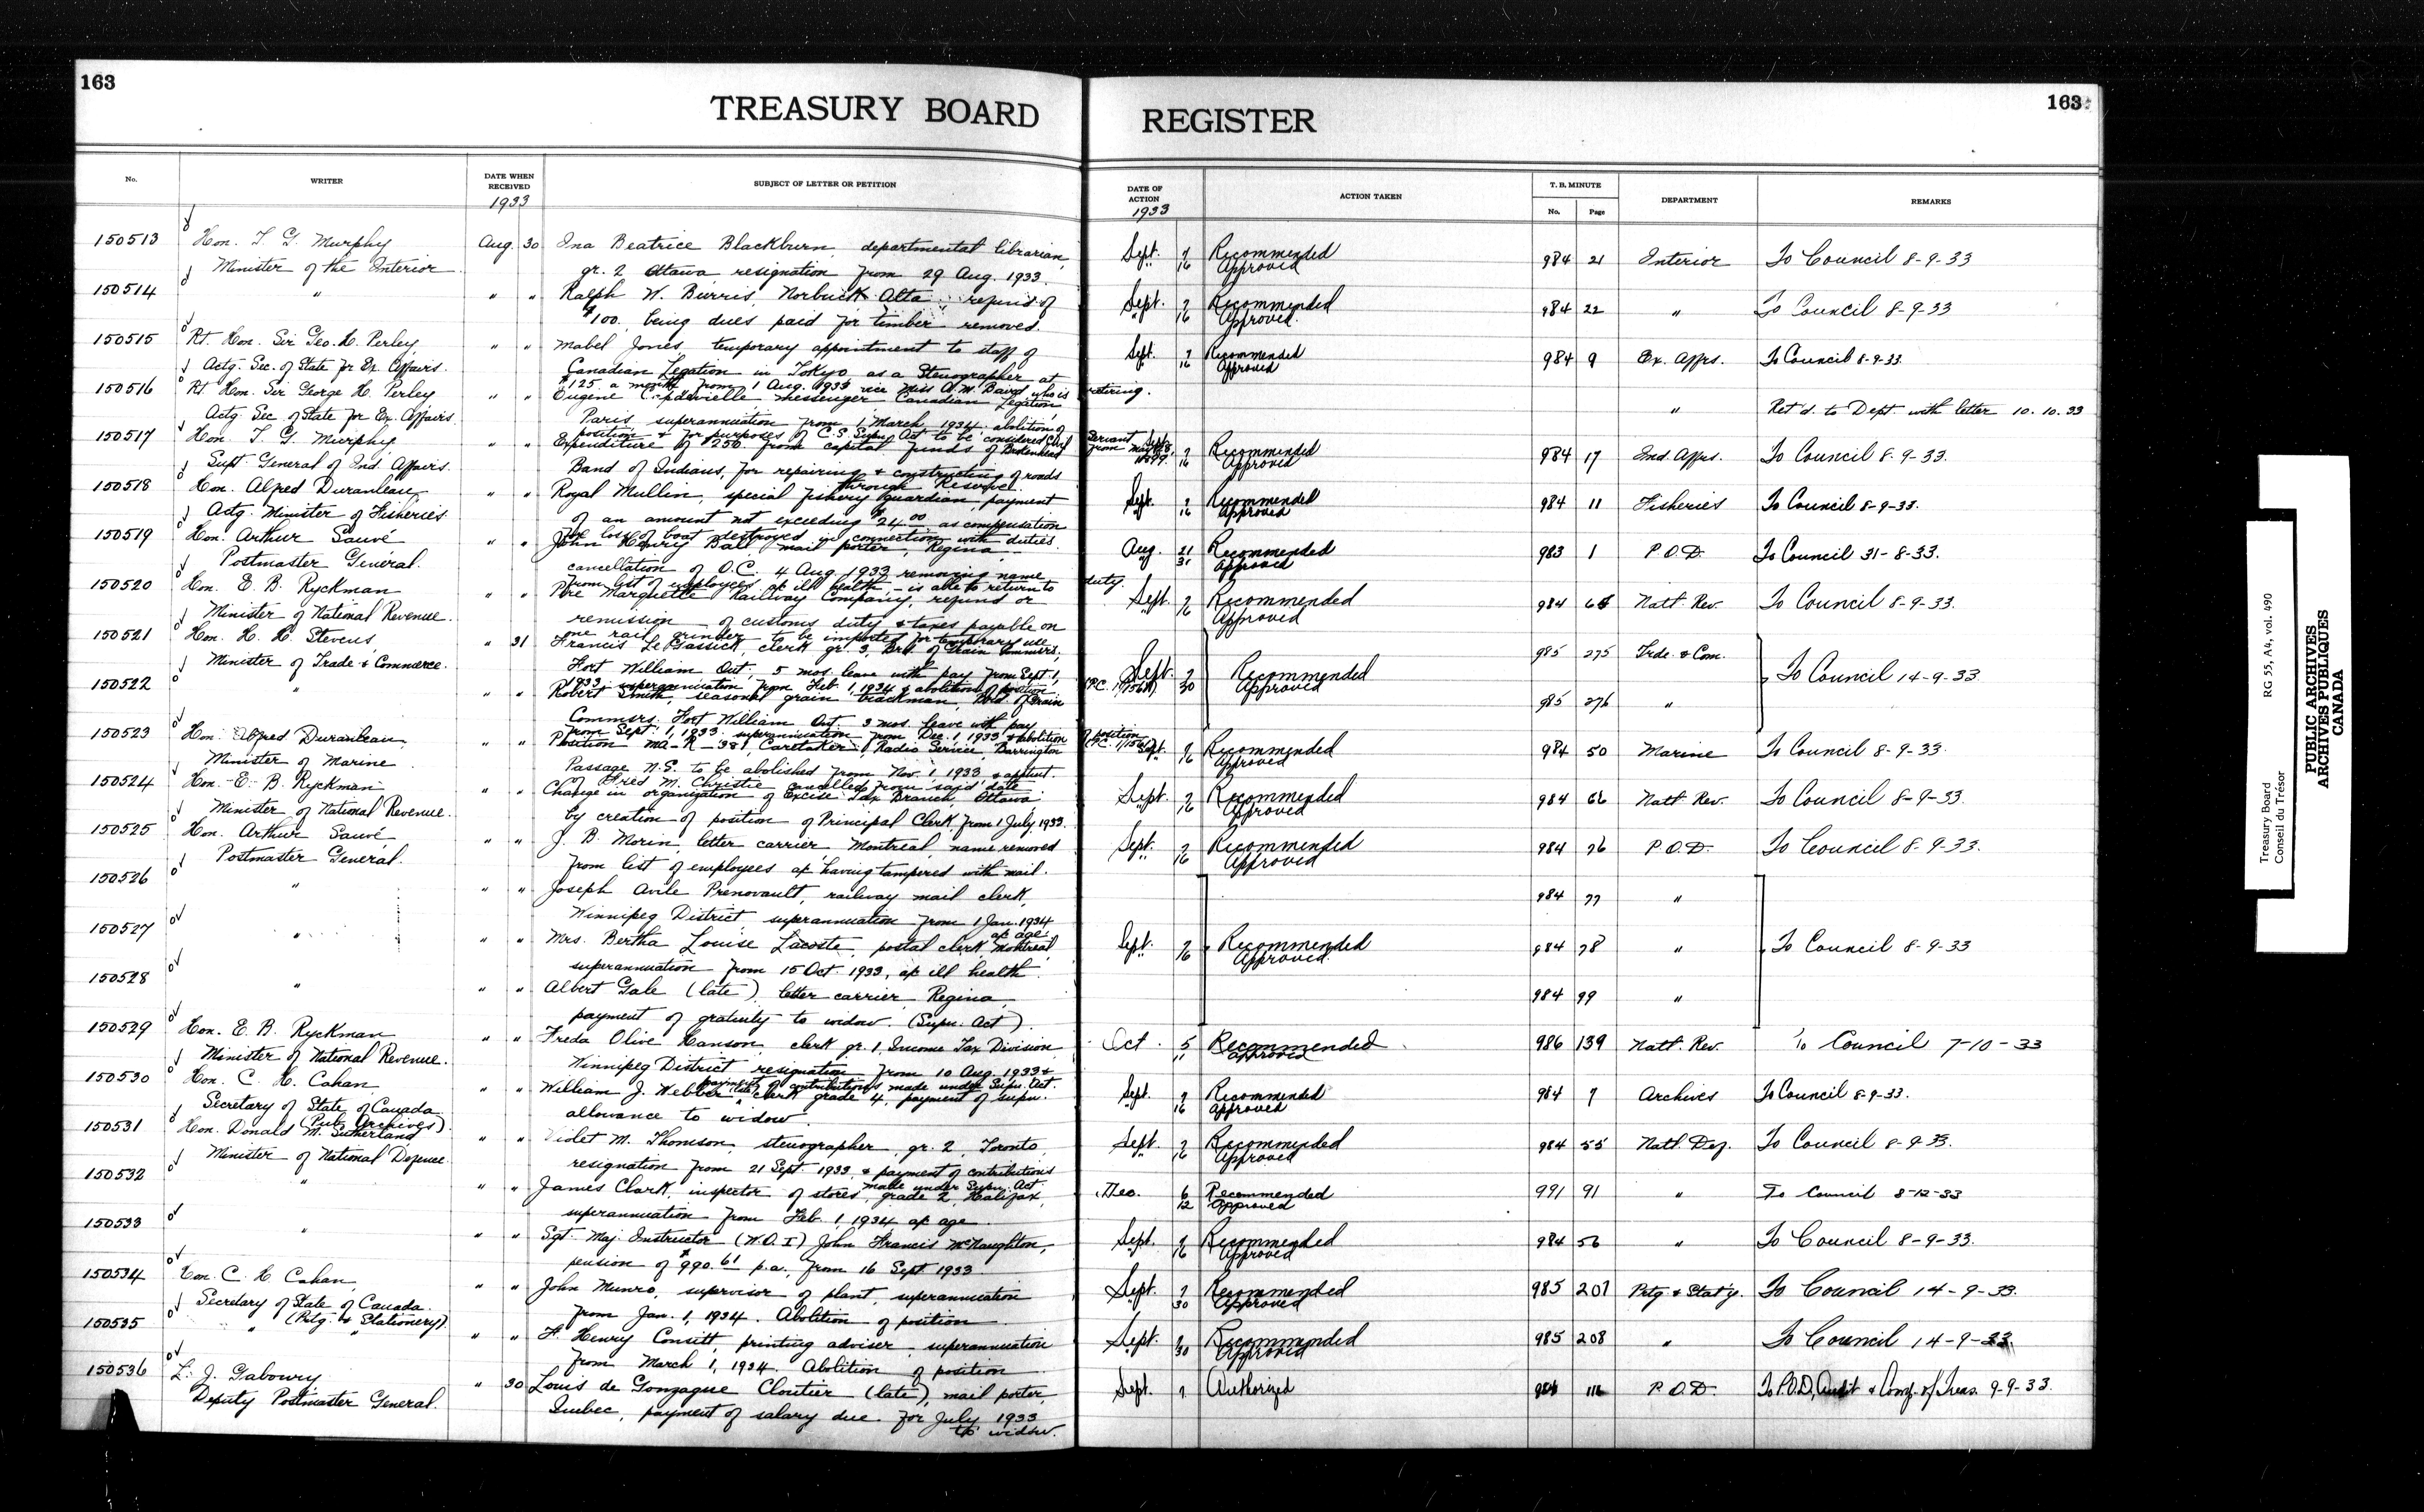 163
163
TREASURY BOARD REGISTER
No.
WRITER
DATE WHEN RECEIVED
1933
SUBJECT OF LETTER OR PETITION
DATE OF ACTION
1933
ACTION TAKEN
T. B. MINUTE
No. Page
DEPARTMENT
REMARKS
150513 Hon. T. G. Murphy Aug. 30 Ina Beatrice Blackburn, departmental librarian, Sept. 7 Recommended 984 21 Interior To Council 8-9-33
Minister of the Interior gr. 2 Ottawa resignation from 29 Aug. 1933. " 16 Approved
150514 " " " Ralph W. Burris, Alta. refund of Sept. 7 Recommended 984 22 " To Council 8-9-33
$100. being dues paid for timber removed. " 16 Approved.
150515 Rt. Hon. Sir Geo. H. Perley " " Mabel Jones temporary appointment to staff of Sept. 7 Recommended 984 9 Ex. Affrs. To Council 8-9-33.
Actg. Sec. of State for Ex. Affairs. Canadian Legation in Tokyo as a Stenographer at 16 Approved
$125. a month from 1 Aug. 1933 vice Miss A. M. Baird who is retiring.
150516 Rt. Hon. Sir George H. Perley " " Eugene messenger Canadian Legation, " Ret'd. to Dept. with letter 10.10.33
Actg. Sec. of State for Ex. Affairs. Paris, superannuation from 1 March, 1934 abolition of
position & for purposes of C.S. Supn. Act to be considered Civil Servant from May
150517 Hon. T. G. Murphy " " Expenditure of $250. from capital funds of Sept. 7 Recommended 984 17 Ind. Affrs. To Council 8-9-33.
Supt. General of Ind. Affairs. Band of Indians, for repairing & constructing of roads 16 Approved
through Reserve.
150518 Hon. Alfred Duranleau, " " Royal Mullin, special fishery guardian, payment Sept. 7 Recommended 984 11 Fisheries To Council 8-9-33.
Actg. Minister of Fisheries of an amount not exceeding $24.00 as compensation " 16 Approved
for loss of boat destroyed in connection with duties.
150519 Hon. Arthur Sauvé " " John Henry Ball mail porter, Regina Aug. 21 Recommended 983 1 P.O.D. To Council 31-8-33.
Postmaster General. cancellation of O.C. 4 Aug. 1933 removing name 31 Approved
from list of employees ac ill health - is able to return to duty.
150520 Hon. E. B. Ryckman " " Pere Marquette Railway Company, refund or Sept. 7 Recommended 984 Natl. Rev. To Council 8-9-33.
Minister of National Revenue. remission of customs duty & taxes payable on " 16 Approved
one rail grinder to be imported for temporary use
150521 Hon. H. H. Stevens, " 31 Francis clerk gr. 3, Brd. of Grain Commsrs., Sept. 7 Recommended 985 275 Trde. & Com. To Council 14-9-33.
Minister of Trade & Commerce. Fort William Ont., 5 mos. leave with pay from Sept. 1, 30 Approved
1933 superannuation from Feb. 1, 1934 & abolition of position
150522 " " " Robert Smith, seasonal grain trackman, Brd. of Grain 985 276 "
Commsrs. Fort William Ont 3 mos. leave with pay
from Sept. 1, 1933. superannuation from Dec. 1, 1933 & abolition of position
150523 Hon. Alfred Duranleau, " " Position MA-R-381 Caretaker, Radio Service, Barrington Sept. 7 Recommended 984 50 Marine To Council 8-9-33.
Minister of Marine Passage N.S. to be abolished from Nov. 1 1933, & apptmt. 16 Approved
of Fred M. Christie cancelled from said date
150524 Hon. E. B. Ryckman " " Change in organization of Excise Tax Branch, Ottawa Sept. 7 Recommended 984 66 Natl. Rev. To Council 8-9-33.
Minister of National Revenue. by creation of position of Principal Clerk, from 1 July 1933. " 16 Approved
150525 Hon. Arthur Sauvé, " " J. B. Morin, letter carrier Montreal, name removed Sept. 7 Recommended 984 76 P.O.D. To Council 8-9-33.
Postmaster General. from list of employees ac having tampered with mail. " 16 Approved
150526 " " " Joseph Avile Prenovault, railway mail clerk, 984 77 "
Winnipeg District superannuation from 1 Jan. 1934
ac age.
150527 " " " Mrs. Bertha Louise Lacoste, postal clerk, Montreal, Sept. 7 Recommended 984 78 " To Council 8-9-33
superannuation from 15 Oct 1933, ac ill health. " 16 Approved.
150528 " " " Albert Gale (late) letter carrier Regina, 984 79 "
payment of gratuity to widow. (Supn. Act).
150529 Hon. E. B. Ryckman " " Freda Olive Hanson, clerk gr. 1, Income Tax Division, Oct. 5 Recommended 986 139 Natl. Rev. To Council 7-10-33
Minister of National Revenue. Winnipeg District resignation from 10 Aug. 1933 & 11 Approved
payment of contributions made under Supn. Act.
150530 Hon. C. H. Cahan, " " William J. Webber (late) clerk grade 4, payment of supn. Sept. 7 Recommended 984 7 Archives To Council 8-9-33.
Secretary of State of Canada allowance to widow. 16 Approved
(Pub. Archives).
150531 Hon. Donald M. Sutherland " " Violet M. Thomson, stenographer, gr. 2, Toronto, Sept. 7 Recommended 984 55 Natl. Def. To Council 8-9-33.
Minister of National Defence resignation from 21 Sept. 1933 & payment of contributions " 16 Approved
made under Supn. Act.
150532 " " " James Clark, inspector of stores, grade 2, Halifax, Dec. 6 Recommended 991 91 " To Council 8-12-33
superannuation from Feb. 1, 1934 ac age. 12 Approved
150533 " " " Sgt. Maj. Instructor (W.O.I) John Francis McNaughton, Sept. 7 Recommended 984 56 " To Council 8-9-33.
pension of $990.61 p.a., from 16 Sept. 1933. " 16 Approved
150534 Hon. C. H. Cahan, " " John Munro, supervisor of plant, superannuation Sept. 7 Recommended 985 207 Prtg. & Stat'y. To Council 14-9-33.
Secretary of State of Canada. from Jan. 1, 1934. Abolition of position " 30 Approved
(Prtg. & Stationery).
150535 " " " " F. Henry Consitt, printing adviser, superannuation Sept. 7 Recommended 985 208 " To Council 14-9-33.
from March 1, 1934. Abolition of position " 30 Approved
150536 L. J. Gaboury " 30 Louis de Gonzague Cloutier (late), mail porter, Sept. 7 Authorized 984 P.O.D. To P.O.D, Audit & Comp. of Treas. 9-9-33.
Deputy Postmaster General. Quebec, payment of salary due for July 1933
to widow.
Treasury Board RG 55, A4, vol. 490
Conseil du Trésor
PUBLIC ARCHIVES
ARCHIVES PUBLIQUES
CANADA